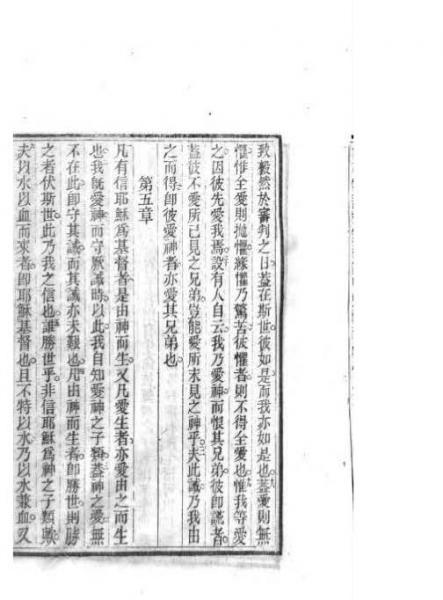 致毅然於審判之日蓋在斯世彼如是而我亦如是也蓋愛則無
懼惟全愛則拋懼緣懼乃驚苦彼懼者則不得全愛也惟我等愛
之因彼先愛我焉設有人自云我乃愛神而恨其兄弟彼即謊者
蓋彼不愛所已見之兄弟豈能愛所未見之神乎夫此誡乃我由
之而得即彼愛神者亦愛其兄弟也
第五章
凡有信耶穌為基督者是由神而生又凡愛生者亦愛由之而生
也我既愛神而守厥誡時以此我自知愛神之子類蓋神之愛無
不在此即守其誡而其誡亦未艱也凡由神而生者即勝世則勝
之者伏斯世此乃我之信也誰勝世乎非信耶穌為神之子類歟
夫以水以血而來者即耶穌基督也且不特以水乃以水兼血又